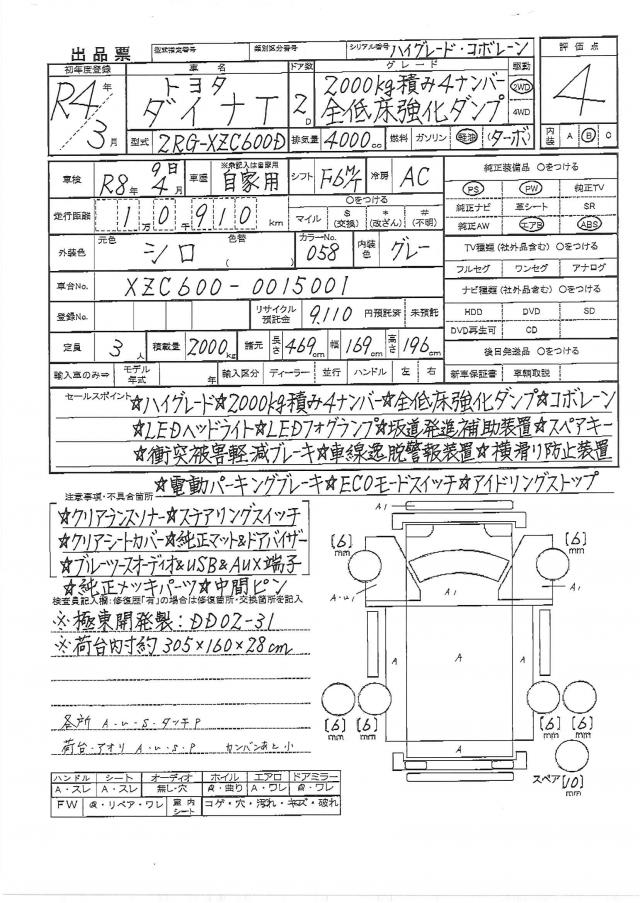 出品票 型式指定番号 類別区分番号 シリアル番号 ハイグレード・コボレーン
評価点
初年度登録 車名 ドア数 グレード 駆動
R4年 トヨタ 2000kg積み4ナンバー 2WD 4
3月 ダイナT 2D 全低床強化ダンプ 4WD
型式 2RG-XZC600D 排気量 4000cc 燃料 ガソリン 軽油 (ターボ) 内装 A B C
車検 R8年9日4月 車歴 ※未記入は自家用 自家用 シフト F6M/T 冷房 AC 純正装備品 〇をつける
PS PW 純正TV
走行距離 10万0千910km 〇をつける マイル $(交換) *(改ざん) #(不明) 純正ナビ 革シート SR
純正AW エアB ABS
外装色 元色 シロ 色替( ) カラーNo. 058 内装色 グレー TV種類(社外品含む)〇をつける
フルセグ ワンセグ アナログ
車台No. XZC600-0015001 ナビ種類(社外品含む)〇をつける
登録No. リサイクル預託金 9,110 円預託済 未預託 HDD DVD SD
DVD再生可 CD
定員 3人 積載量 2000kg 諸元 長さ 469cm 幅 169cm 高さ 196cm 後日発送品 〇をつける
輸入車のみ⇒ モデル年式 年 輸入区分 ディーラー 並行 ハンドル 左 右 新車保証書 車輌取説
セールスポイント ☆ハイグレード☆2000kg積み4ナンバー☆全低床強化ダンプ☆コボレーン
☆LEDヘッドライト☆LEDフォグランプ☆坂道発進補助装置☆スペアキー
☆衝突被害軽減ブレーキ☆車線逸脱警報装置☆横滑り防止装置
☆電動パーキングブレーキ☆ECOモードスイッチ☆アイドリングストップ
注意事項・不具合箇所
☆クリアランスソナー☆ステアリングスイッチ
☆クリアシートカバー☆純正マット&ドアバイザー
☆ブルーツースオーディオ&USB&AUX端子
☆純正メッキパーツ☆中間ピン
検査員記入欄:修復歴「有」の場合は修復箇所・交換箇所を記入
※極東開発製:DD02-31
※荷台内寸約305×160×28cm
各所 A・u・S・タッチP
荷台・アオリ A・u・S・P カンバンあと小
A1
[6]mm [6]mm
A・u1 A1 A1
A A A
[6]mm [6]mm [6]mm [6]mm
A
スペア [10]mm
ハンドル シート オーディオ ホイル エアロ ドアミラー
A・スレ A・スレ 無し・穴 A・曲り A・ワレ A・ワレ
FW A・リペア・ワレ 室内シート コゲ・穴・汚れ・キズ・破れ